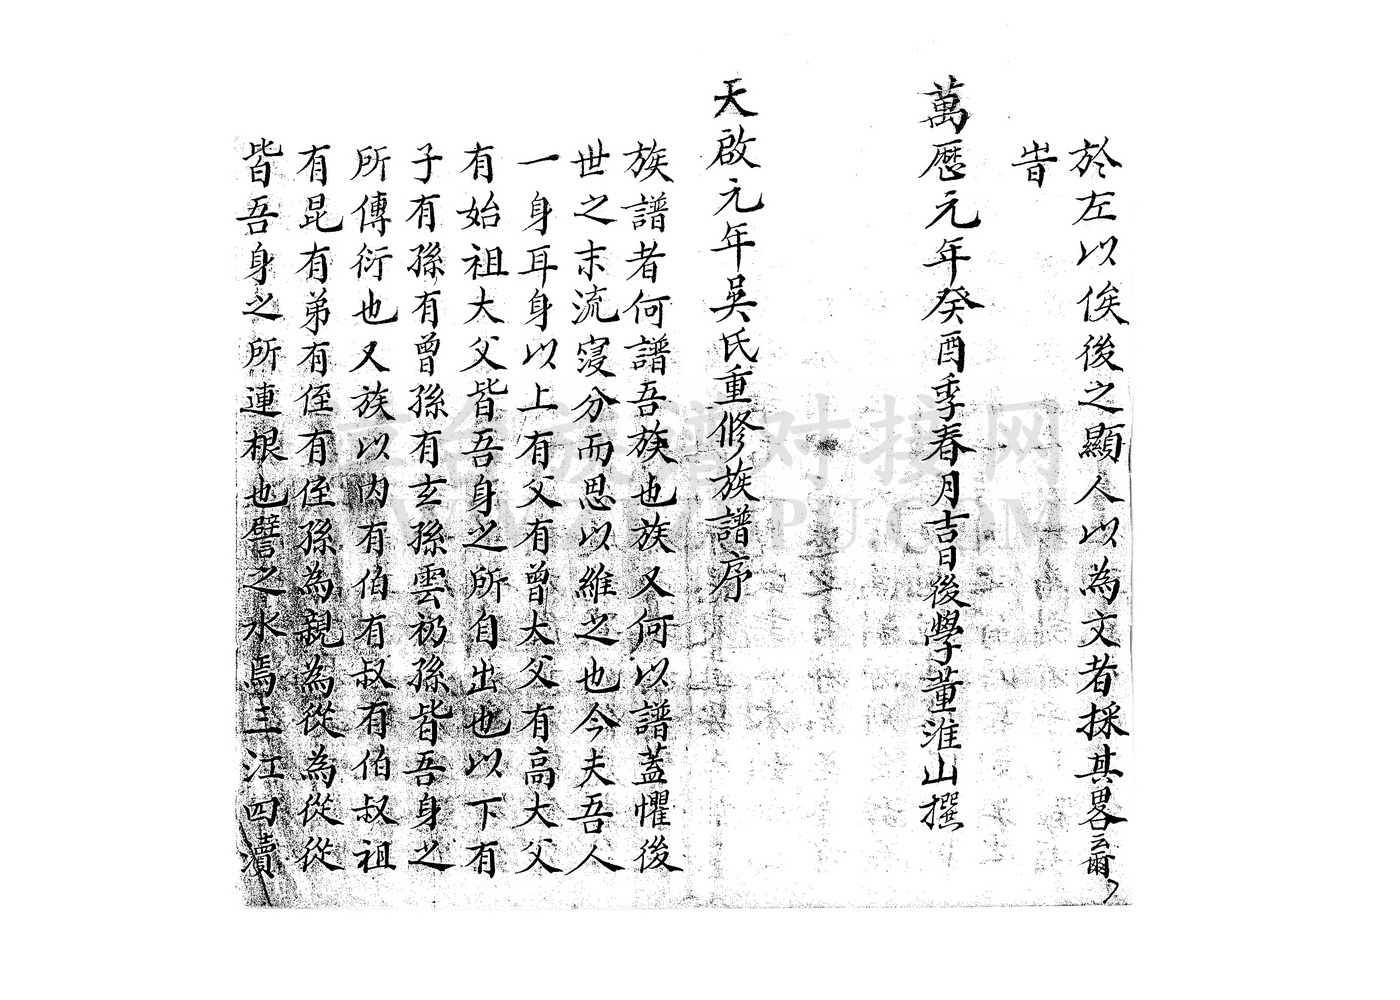 於左以俟後之顯人以為文者採其畧云爾
旹
萬厯元年癸酉季春月吉日後學董淮山撰
天啟元年吳氏重修族譜序
族譜者何譜吾族也族又何以譜蓋懼後
世之末流寖分而思以維之也今夫吾人
一身耳身以上有父有曾大父有高大父
有始祖大父皆吾身之所自出也以下有
子有孫有曾孫有玄孫雲礽孫皆吾身之
所傳衍也又族以内有伯有叔有伯叔祖
有昆有弟有侄有侄孫為親為從為從從
皆吾身之所連根也譬之水焉三江四瀆